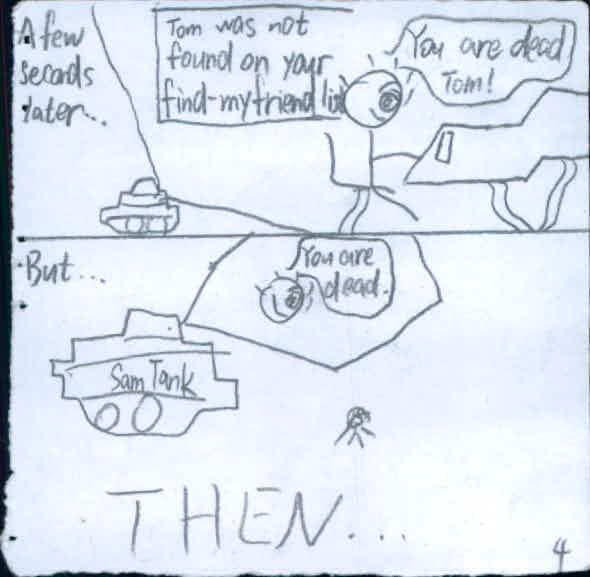 A few
seconds
later...
Tom was not
found on your
find-my friend list
You are dead
Tom!
But...
You are
dead.
Sam Tank
THEN...
4